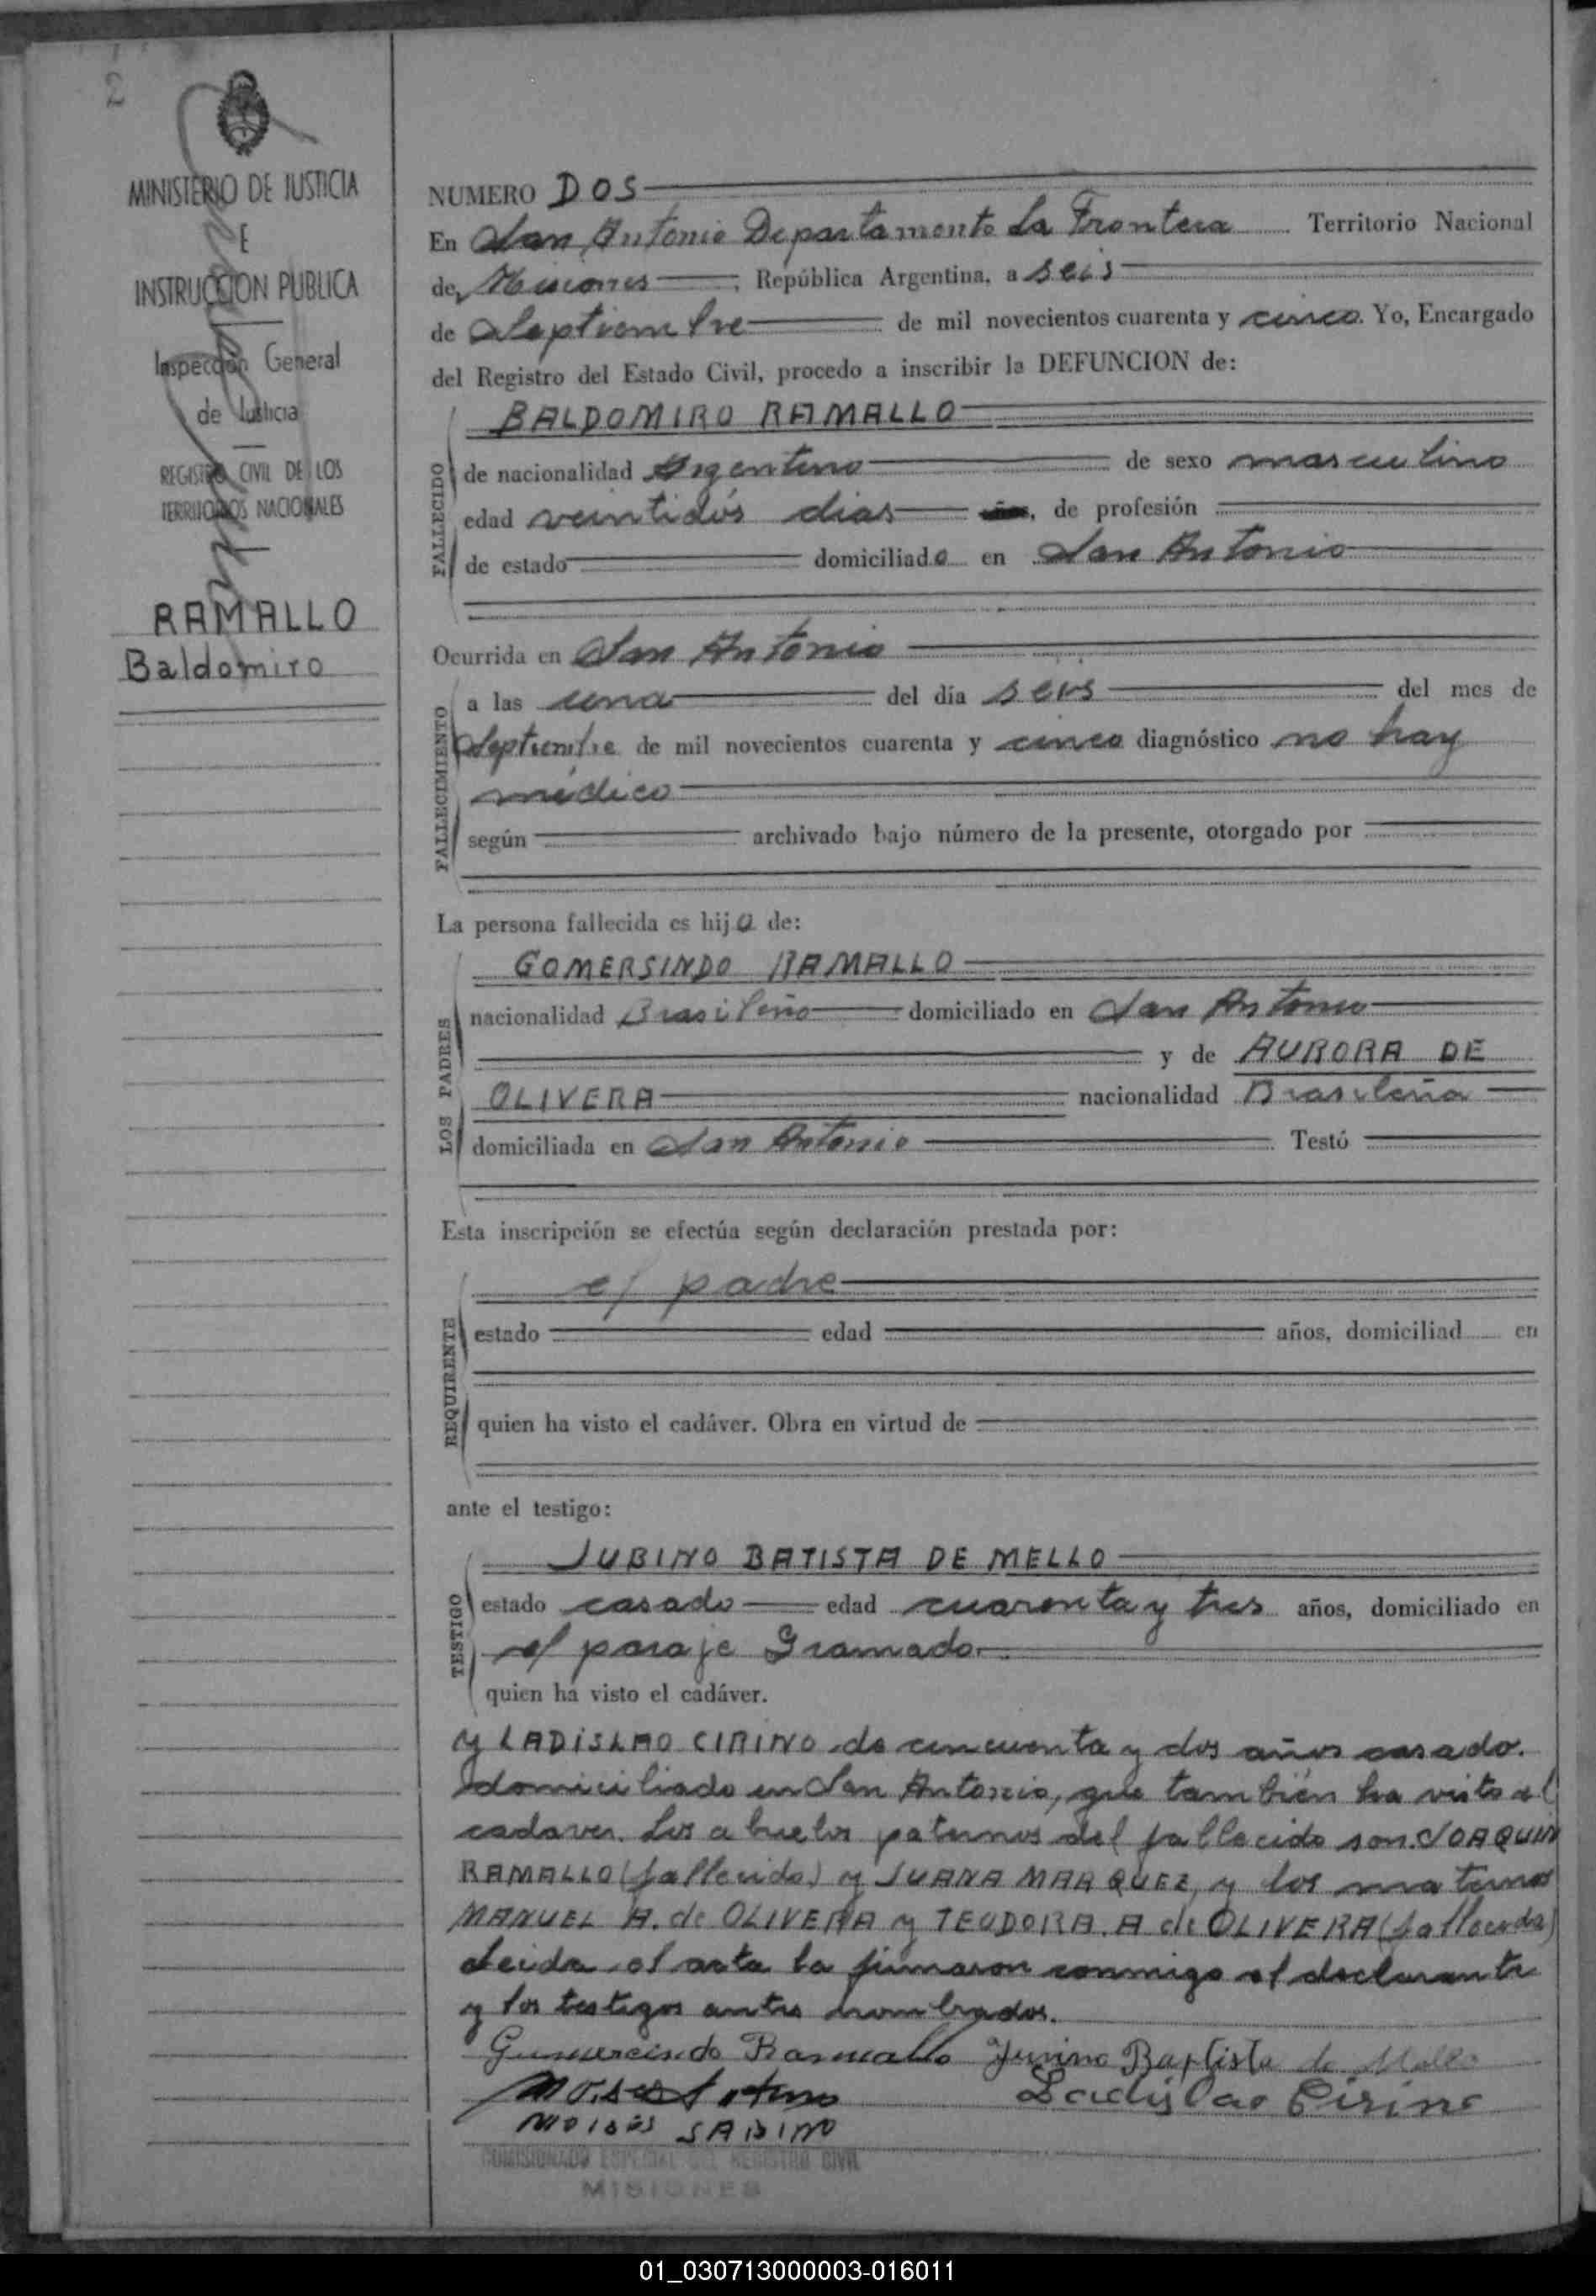 2
MINISTERIO DE JUSTICIA
E
INSTRUCCION PUBLICA
Inspección General
de Justicia
REGISTRO CIVIL DE LOS
TERRITORIOS NACIONALES
RAMALLO
Baldomiro
NUMERO DOS
En San Antonio Departamento La Frontera Territorio Nacional
de Misiones, República Argentina, a seis
de Septiembre de mil novecientos cuarenta y cinco. Yo, Encargado
del Registro del Estado Civil, procedo a inscribir la DEFUNCION de:
FALLECIDO
BALDOMIRO RAMALLO
de nacionalidad Argentino de sexo masculino
edad veintidós dias años, de profesión
de estado domiciliado en San Antonio
Ocurrida en San Antonio
FALLECIMIENTO
a las una del día seis del mes de
Septiembre de mil novecientos cuarenta y cinco diagnóstico no hay
médico
según archivado bajo número de la presente, otorgado por
La persona fallecida es hijo de:
LOS PADRES
GOMERSINDO RAMALLO
nacionalidad Brasileño domiciliado en San Antonio
y de AURORA DE
OLIVERA nacionalidad Brasileña
domiciliada en San Antonio Testó
Esta inscripción se efectúa según declaración prestada por:
REQUIRENTE
el padre
estado edad años, domiciliad en
quien ha visto el cadáver. Obra en virtud de
ante el testigo:
TESTIGO
JUBINO BATISTA DE MELLO
estado casado edad cuarenta y tres años, domiciliado en
el paraje Gramado.
quien ha visto el cadáver.
y LADISLAO CIRINO de cincuenta y dos años casado.
domiciliado en San Antonio, que también ha visto el
cadaver. Los abuelos paternos del fallecido son: JOAQUIN
RAMALLO (fallecido) y JUANA MARQUEZ, y los maternos
MANUEL A. de OLIVERA y TEODORA. A de OLIVERA (fallecida)
Leida el acta la firmaron conmigo el declarante
y los testigos antes nombrados.
Gumercindo Ramallo Juvino Baptista de Mello
Ladislao Cirino
MOISÉS SABINO
COMISIONADO ESPECIAL DEL REGISTRO CIVIL
MISIONES
01_030713000003-016011